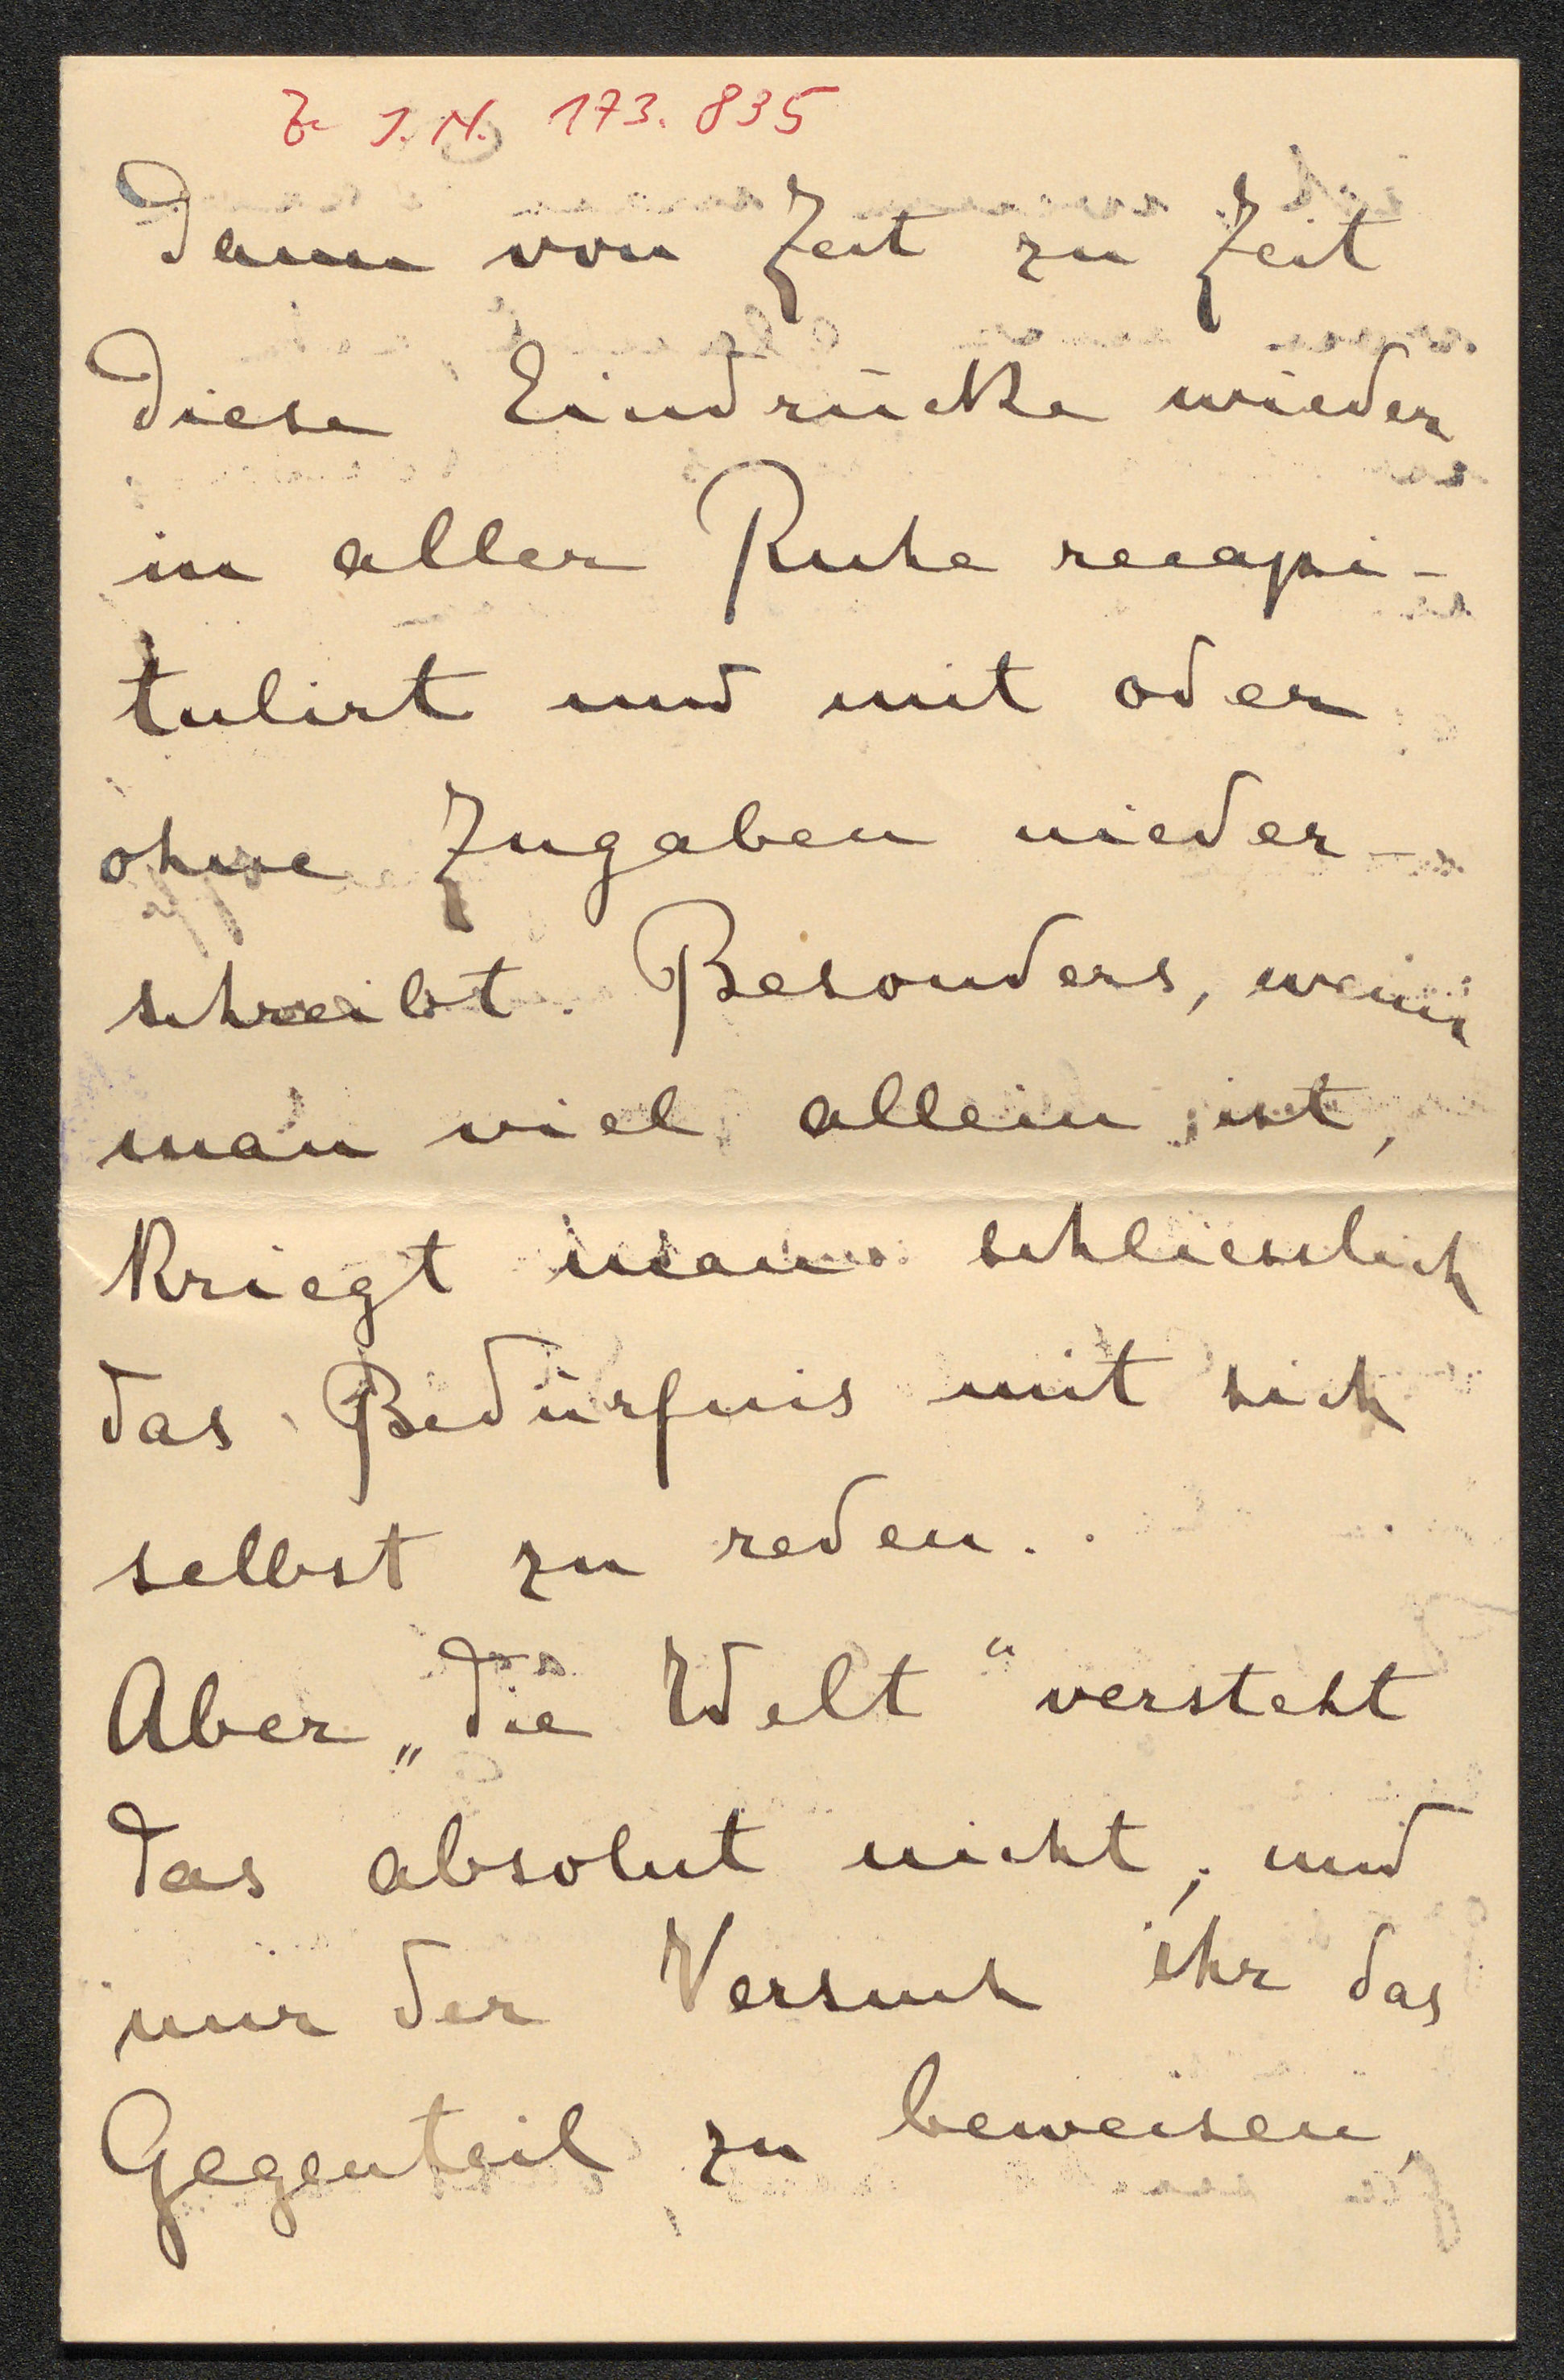 Z. J. N. 173.835
Dann von Zeit zu Zeit
diese Eindrücke wieder
in aller Ruhe recapi-
tulirt und mit oder
ohne Zugaben nieder-
schreibt. Besonders, wenn
man viel allein ist,
kriegt man schliesslich
das Bedürfnis mit sich
selbst zu reden..
Aber „die Welt“ versteht
das absolut nicht, und
nur der Versuch ihr das
Gegenteil zu beweisen,